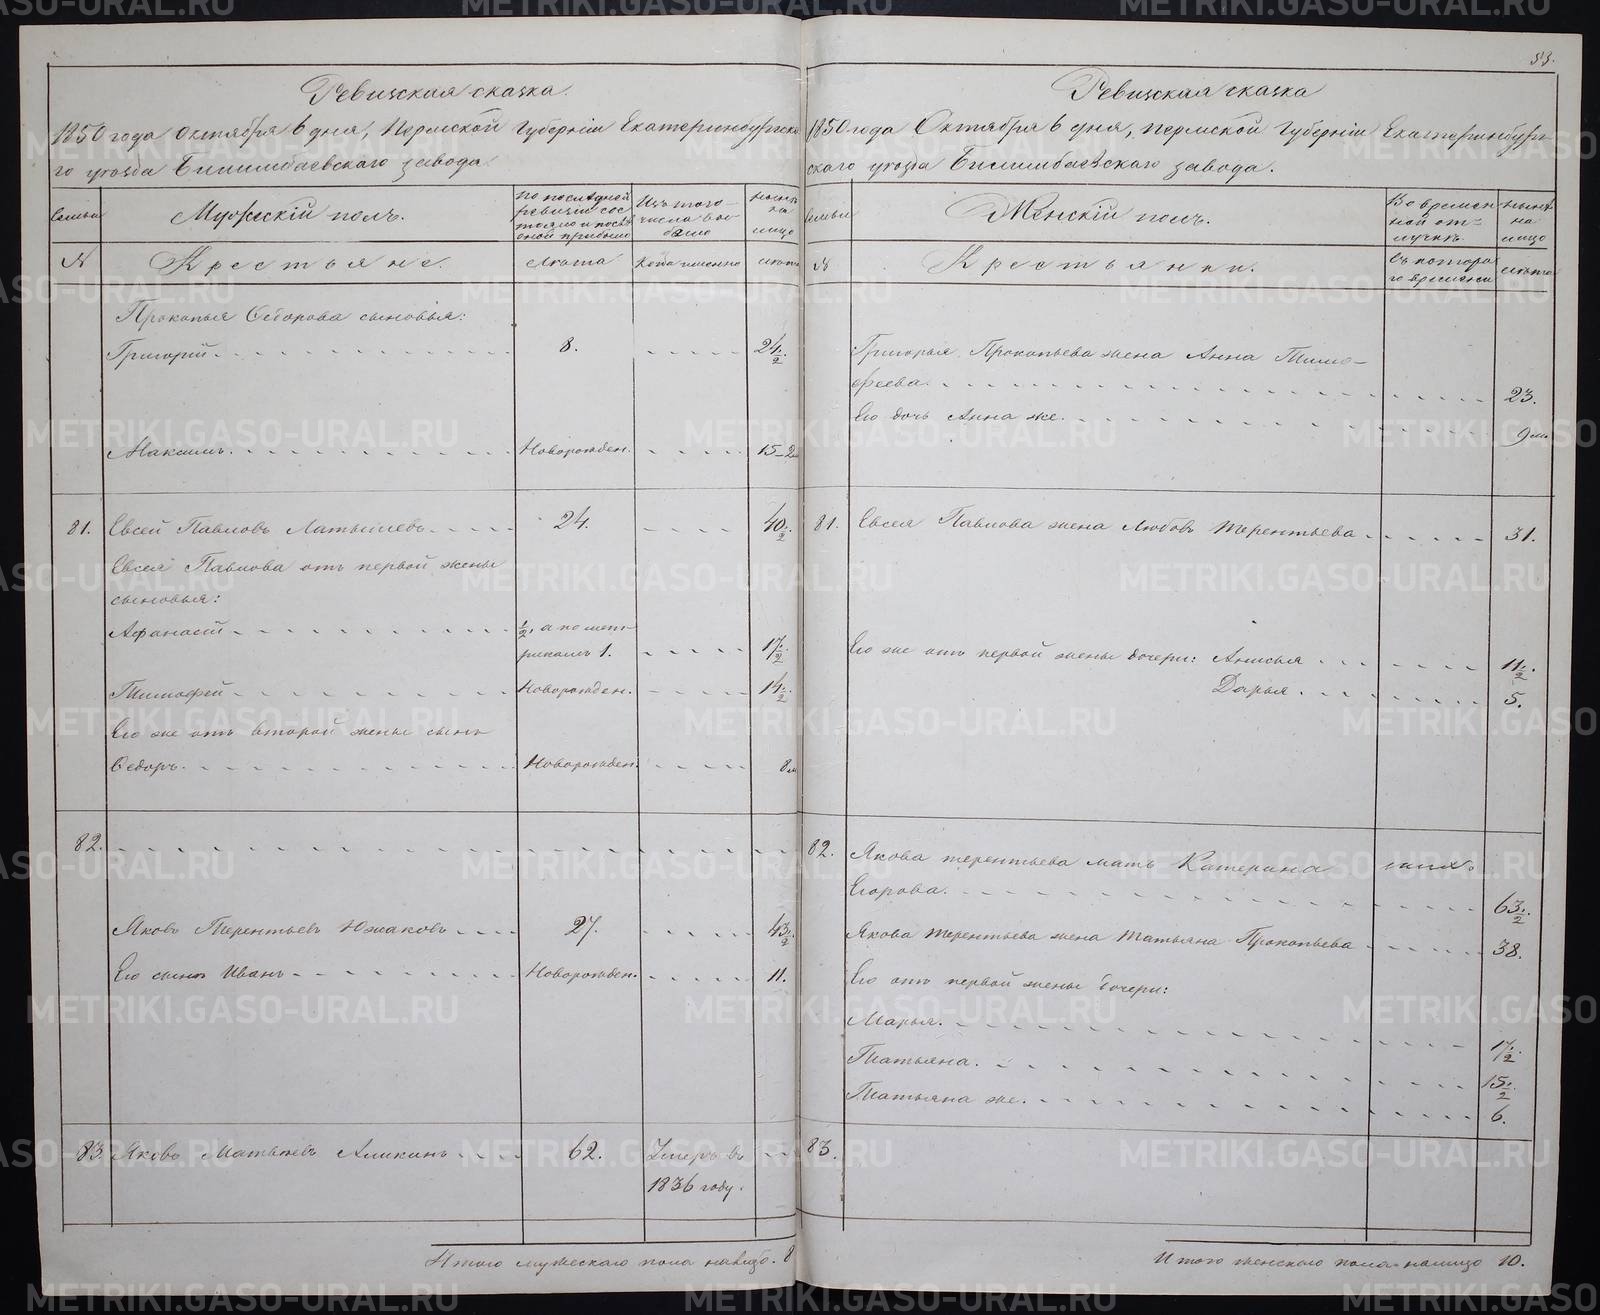 Ревизская сказка.
1850 года октября 6 дня, Пермской Губерніи Екатеринбургска
го уѣзда Билимбаевскаго завода.
Семьи
Мужескій полъ.
По последней ревизіи сос-
тояло и послѣ
оной прибыло
Изъ того
числа вы-
было
Нынѣ
на
лицо
№
Крестьяне.
Лѣта
Когда именно
лѣта
Прокопья Ѳедорова сыновья:
Григорій 8. 24½.
Максимъ. Новорожден. 15-2м
81. Евсей Павловъ Латышевъ 24. 40½.
Евсея Павлова отъ первой жены
сыновья:
Афанасій ½, а по мет-
рикамъ 1. 17½.
Тимофей Новорожден. 14½.
Его же отъ второй жены сынъ
Ѳедоръ. Новорожден. 8м
82.
Яковъ Терентьевъ Южаковъ 27. 43½.
Его сынъ Иванъ Новорожден. 11.
83. Яковъ Матвѣевъ Аликинъ 62. Умеръ въ
1836 году.
Итого мужескаго пола налицо. 8
83.
Ревизская сказка
1850 года Октября 6 дня, Пермской Губерніи Екатеринбург-
скаго уѣзда Билимбаевскаго завода.
Семьи
Женскій полъ.
Во времен
ной от-
лучкѣ.
нынѣ
на
лицо
№
Крестьянки.
съ котора-
го времени
лѣта
Григорья Прокопьева жена Анна Тимо-
феева. 23.
Его дочь Анна же. 9м.
81. Евсея Павлова жена Любовь Терентьева 31.
Его же отъ первой жены дочери: Анисья 11½.
Дарья 5.
82. Якова Терентьева мать Катерина
Егорова. 63½.
Якова Терентьева жена Татьяна Прокопьева 38.
Его отъ первой жены дочери:
Марья. 17½.
Татьяна. 15½.
Татьяна же. 6.
83.
Итого женскаго пола налицо 10.
METRIKI.GASO-URAL.RU